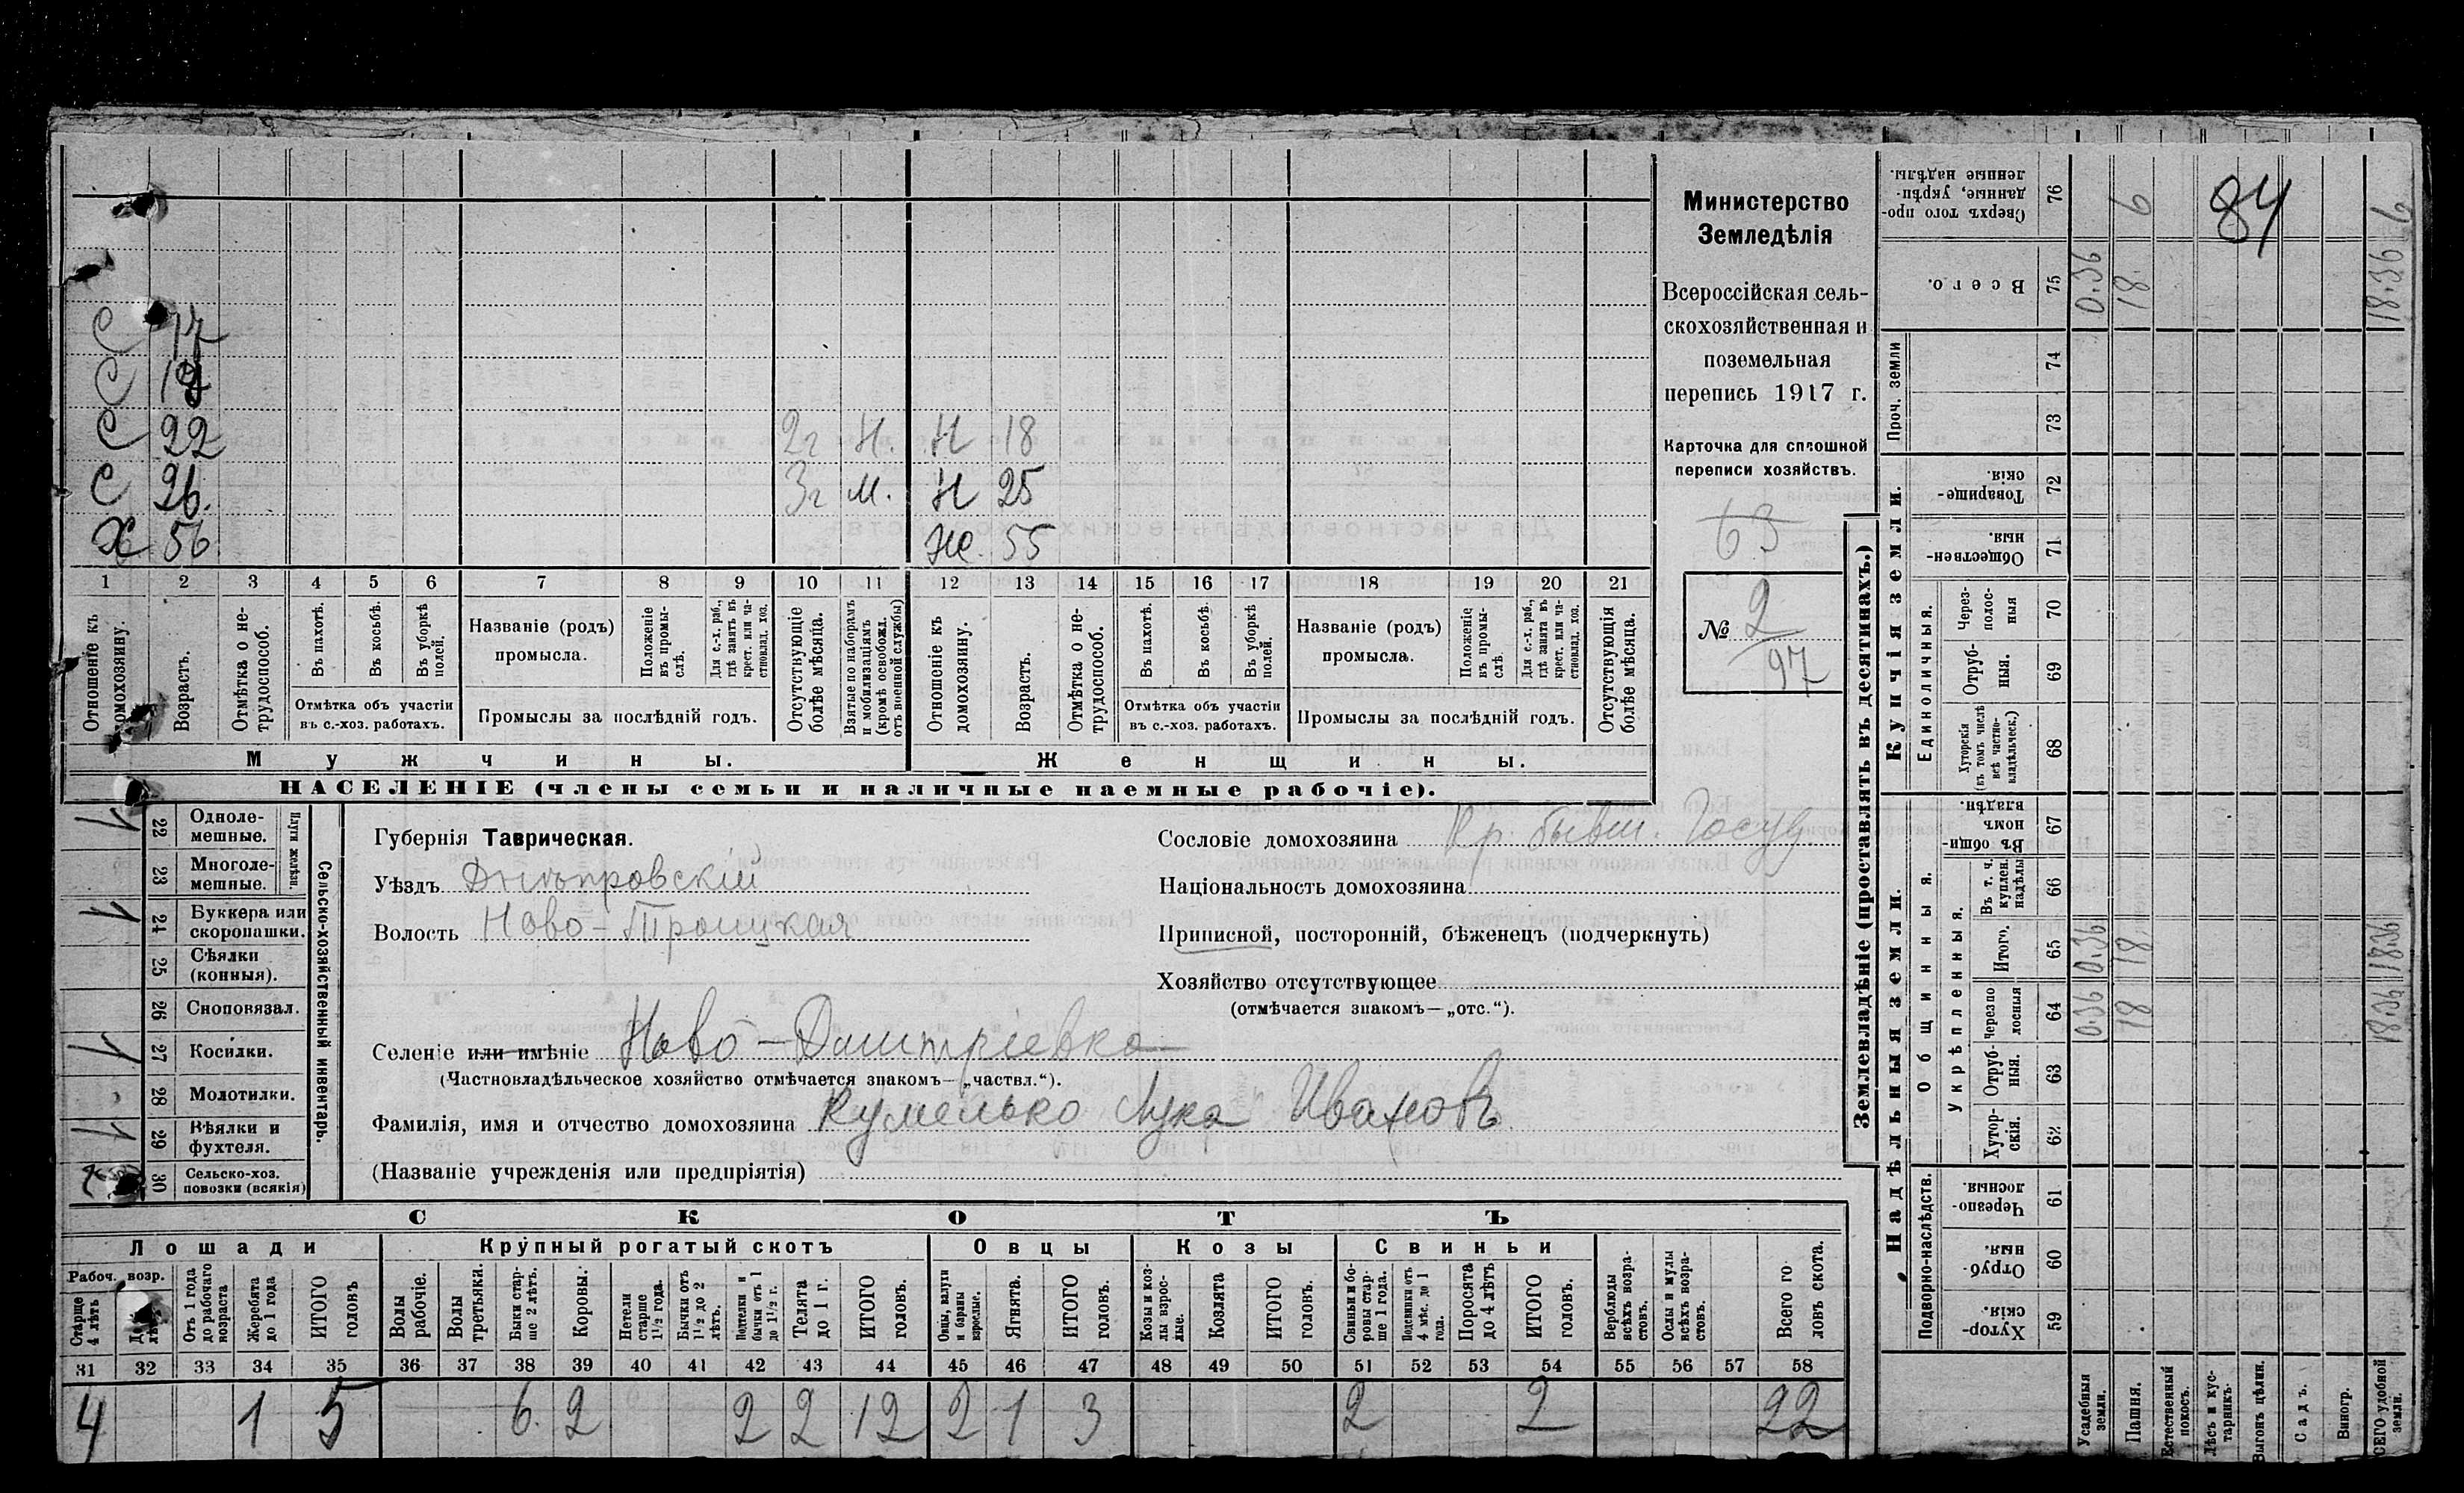 Министерство
Земледѣлія
Всероссійская сель-
скохозяйственная и
поземельная
перепись 1917 г.
Карточка для сплошной
переписи хозяйствъ.
63
№ 2
97
С 17
С
С 22 2г Н. Н 18
С 26. 3г М. Н 25
Х 56 Же. 55
1 2 3 4 5 6 7 8 9 10 11 12 13 14 15 16 17 18 19 20 21
Отношеніе къ домохозяину.
Возрастъ.
Отмѣтка о не-
трудоспособ.
Въ пахотѣ.
Въ косьбѣ.
Въ уборкѣ
полей.
Отмѣтка объ участіи
въ с.-хоз. работахъ.
Названіе (родъ)
промысла.
Положеніе
въ промы-
слѣ.
Для с.-х. раб.,
гдѣ занятъ въ
крест. или ча-
стновлад. хоз.
Промыслы за послѣдній годъ.
Отсутствующіе
болѣе мѣсяца.
Взятые по наборамъ
и мобилизаціямъ
(кромѣ освобожд.
отъ военной службы)
Отношеніе къ
домохозяину.
Возрастъ.
Отмѣтка о не-
трудоспособ.
Въ пахотѣ.
Въ косьбѣ.
Въ уборкѣ
полей.
Отмѣтка объ участіи
въ с.-хоз. работахъ.
Названіе (родъ)
промысла.
Положеніе
въ промы-
слѣ.
Для с.-х. раб.,
гдѣ занята въ
крест. или ча-
стновлад. хоз.
Промыслы за послѣдній годъ.
Отсутствующія
болѣе мѣсяца.
Мужчины.
Женщины.
НАСЕЛЕНІЕ (члены семьи и наличные наемные рабочіе).
22 Одноле-
мешные.
23 Многоле-
мешные.
Плуги желѣзн.
24 Буккера или
скоропашки.
25 Сѣялки
(конныя).
26 Сноповязал.
27 Косилки.
28 Молотилки.
29 Вѣялки и
фухтеля.
30 Сельско-хоз.
повозки (всякія)
Сельско-хозяйственный инвентарь.
Губернія Таврическая.
Уѣздъ Днѣпровскій
Волость Ново-Троицкая
Сословіе домохозяина Кр. бывш. Госуд.
Національность домохозяина
Приписной, посторонній, бѣженецъ (подчеркнуть)
Хозяйство отсутствующее
(отмѣчается знакомъ—„отс.“).
Селеніе или имѣніе Ново-Дмитріевка
(Частновладѣльческое хозяйство отмѣчается знакомъ—„частвл.“).
Фамилія, имя и отчество домохозяина Кумейко Лука Ивановъ
(Названіе учрежденія или предпріятія)
СКОТЪ
Лошади
Крупный рогатый скотъ
Овцы
Козы
Свиньи
Рабоч. возр.
Старше
4 лѣтъ
Отъ 1 года
до рабочаго
возраста
Жеребята
до 1 года
ИТОГО
головъ
Волы
рабочіе.
Волы
третьяки.
Быки стар-
ше 2 лѣтъ.
Коровы.
Нетели
старше
1½ года.
Бычки отъ
1½ до 2
лѣтъ.
Подтелки и
бычки отъ 1
до 1½ г.
Телята
до 1 г.
ИТОГО
головъ.
Овцы, валухи
и бараны
взрослые.
Ягнята.
ИТОГО
головъ.
Козы и коз-
лы взрос-
лые.
Козлята
ИТОГО
головъ.
Свиньи и бо-
ровы стар-
ше 1 года.
Подсвинки отъ
4 мѣс. до 1
года.
Поросята
до 4 лѣтъ
ИТОГО
головъ.
Верблюды
всѣхъ возра-
стовъ.
Ослы и мулы
всѣхъ возра-
стовъ.
Всего го-
ловъ скота.
31 32 33 34 35 36 37 38 39 40 41 42 43 44 45 46 47 48 49 50 51 52 53 54 55 56 57 58
4 1 5 6. 2 2 2 12 2 1 3 2 2 22
Землевладѣніе (проставлять въ десятинахъ.)
Купчія земли.
Надѣльныя земли.
Сверхъ того про-
данные, укрѣп-
ленные надѣлы.
76 6 84 6
Всего.
75 0.36 18. 18.36
Проч. земли
74
73
Товарище-
скія.
72
Обществен-
ныя.
71
Единоличныя.
Через-
полос-
ныя
70
Отруб-
ныя.
69
Хуторскія
(въ томъ числѣ
всѣ частно-
владѣльческ.)
68
Общинныя.
Въ общин-
номъ
владѣн.
67
Укрѣпленныя.
Въ т. ч.
куплен.
надѣлы
66
Итого.
65 0.36 18 18.36
Черезпо
лосныя
64 0.36 18 18.36
Отруб-
ныя.
63
Хутор-
скія.
62
Подворно-наслѣдств.
Черезпо-
лосныя.
61
Отруб-
ныя.
60
Хутор-
скія.
59
Усадебныя
земли.
Пашня.
Естественный
покосъ.
Лѣсъ и кус-
тарникъ.
Выгонъ цѣлин.
Садъ.
Виногр.
ВСЕГО удобной
земли.